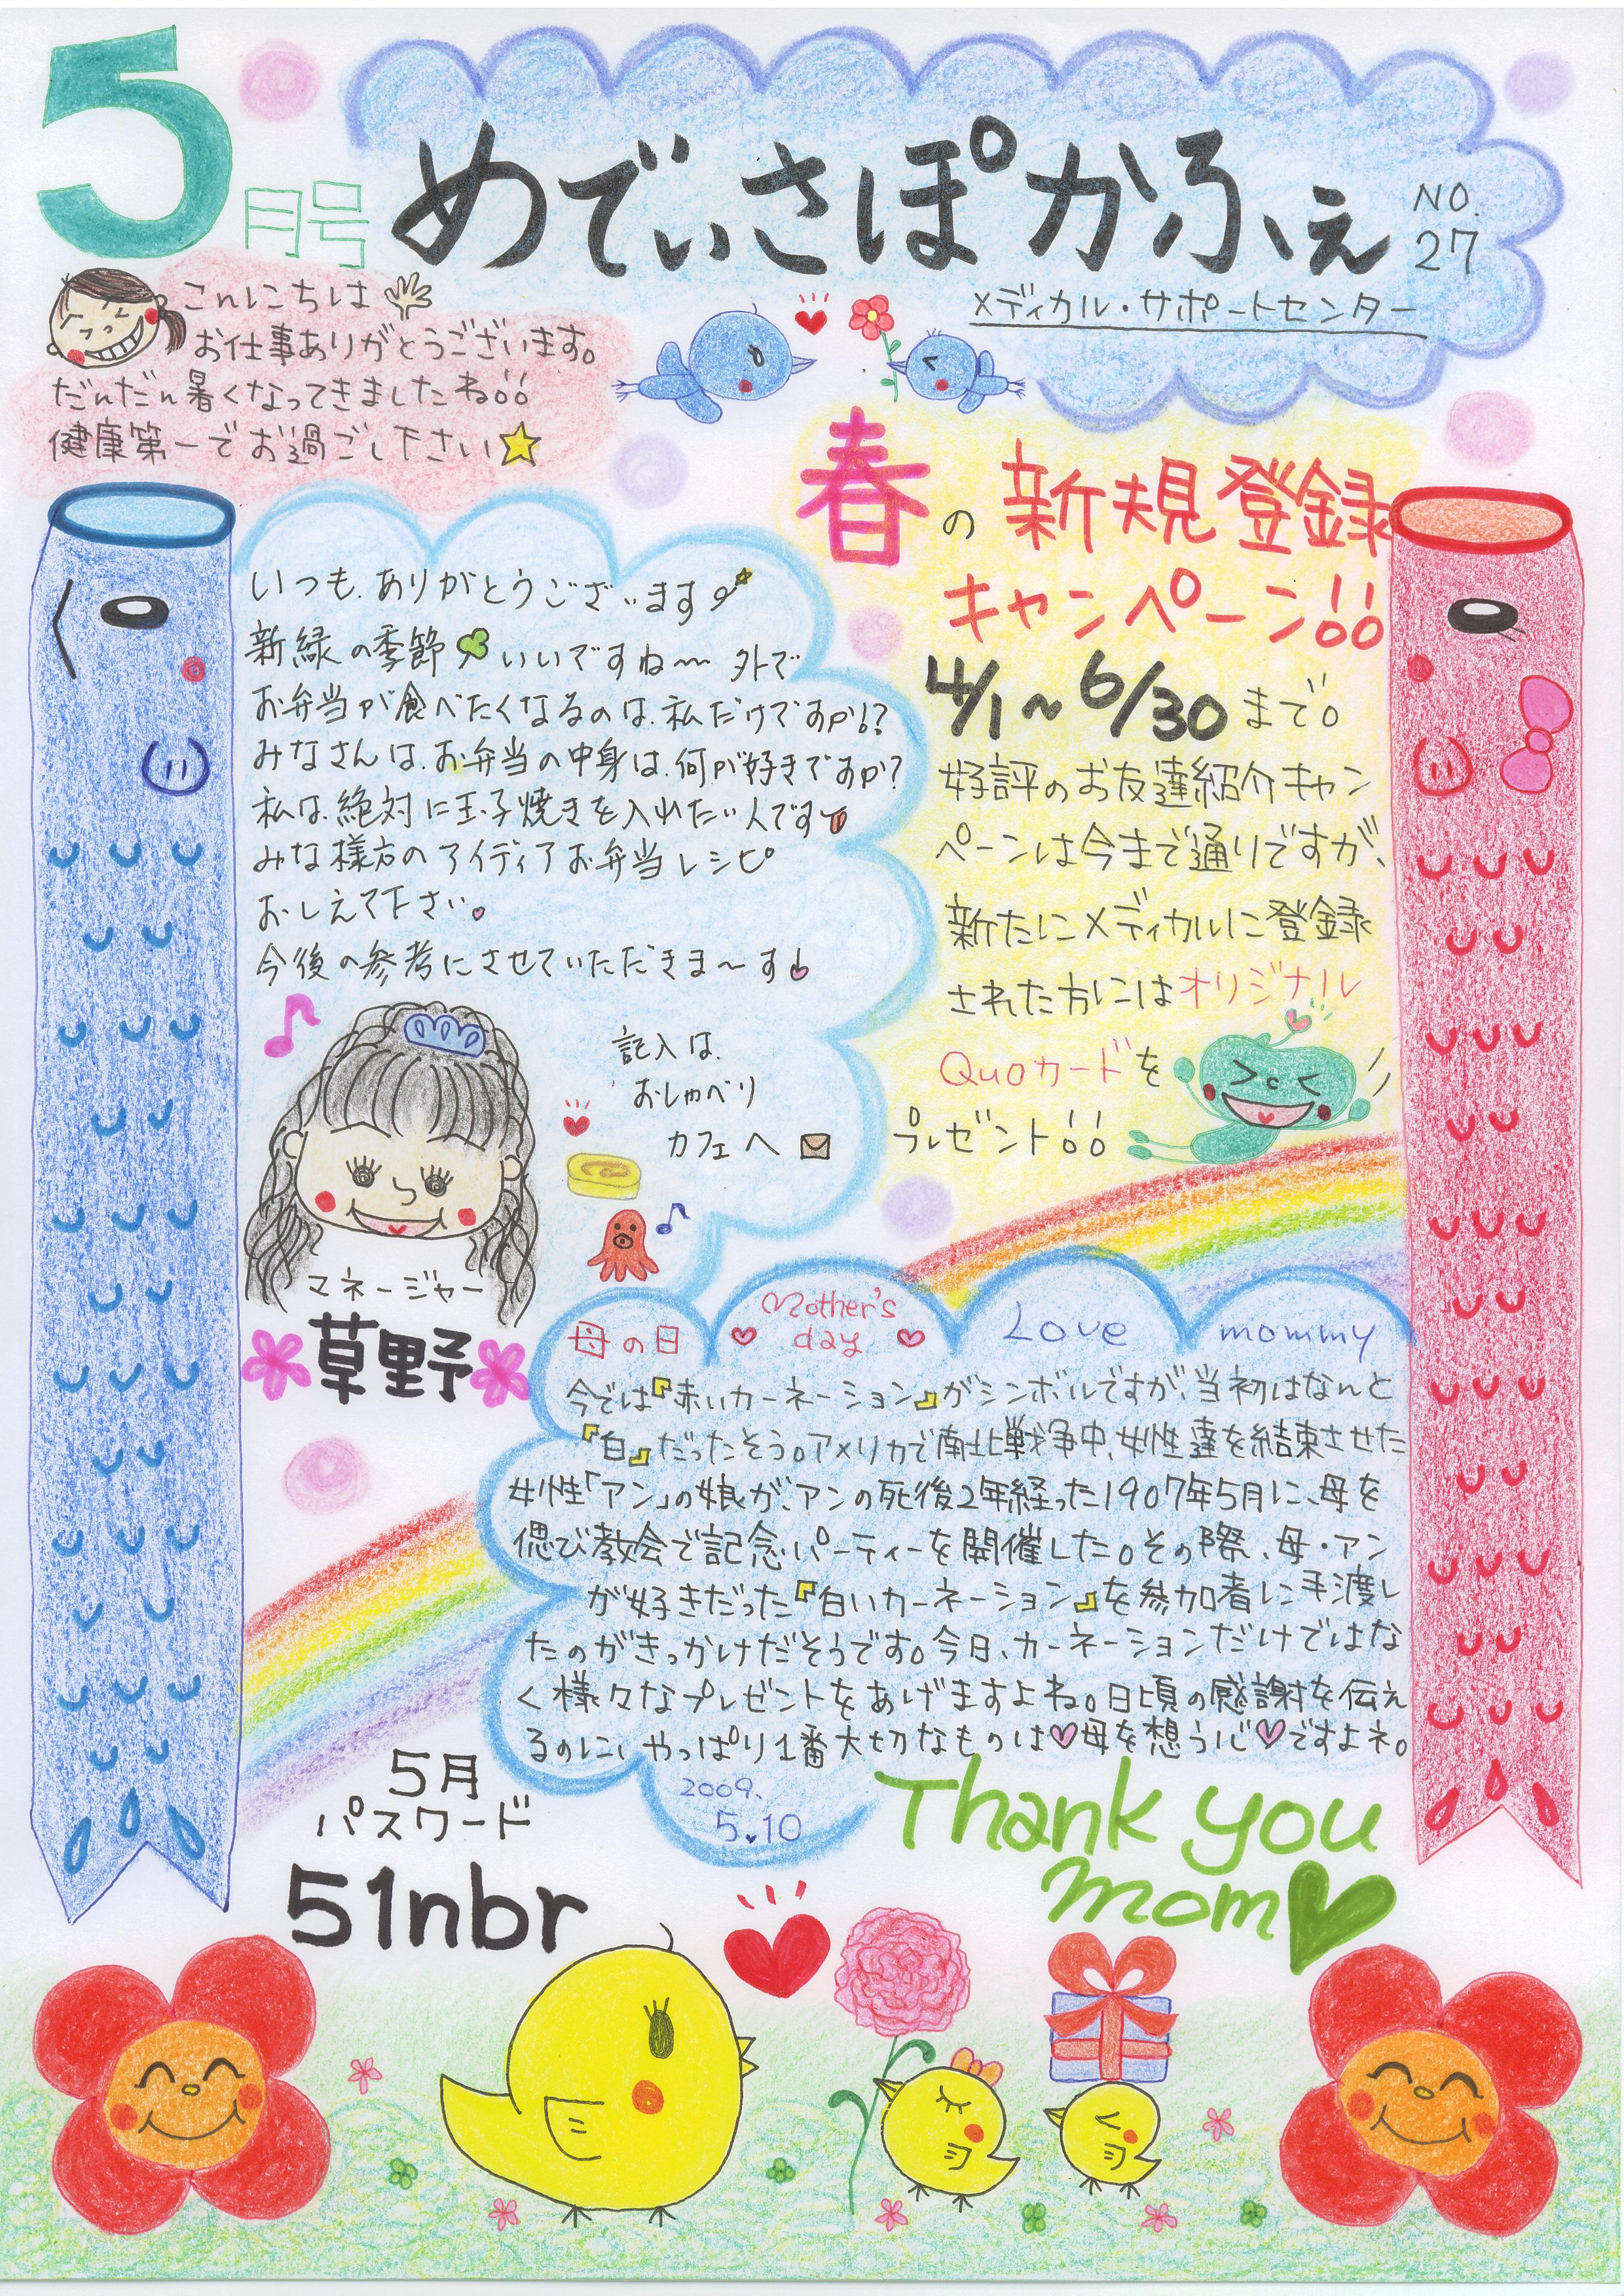 5月号
めでぃさぽかふぇ
NO.
27
メディカル・サポートセンター
こんにちは
お仕事ありがとうございます。
だんだん暑くなってきましたね!!
健康第一でお過ごし下さい☆
春の新規登録
キャンペーン!!
4/1~6/30まで。
好評のお友達紹介キャン
ペーンは今まで通りですが、
新たにメディカルに登録
された方にはオリジナル
Quoカードを
プレゼント!!
いつも、ありがとうございます
新緑の季節いいですね〜外で
お弁当が食べたくなるのは、私だけですか!?
みなさんは、お弁当の中身は、何が好きですか?
私は、絶対に玉子焼きを入れたい人です
みな様方のアイディアお弁当レシピ
おしえて下さい。
今後の参考にさせていただきま〜す!
記入は、
おしゃべり
カフェへ
マネージャー
草野
母の日 Mother's day Love mommy
今では『赤いカーネーション』がシンボルですが、当初はなんと
『白』だったそう。アメリカで南北戦争中、女性達を結束させた
女性「アン」の娘が、アンの死後2年経った1907年5月に、母を
偲び教会で記念パーティーを開催した。その際、母・アン
が好きだった『白いカーネーション』を参加者に手渡し
たのがきっかけだそうです。今日、カーネーションだけではな
く様々なプレゼントをあげますよね。日頃の感謝を伝え
るのに、やっぱり1番大切なものは♡母を想う心♡ですよネ。
2009.
5.10
Thank you
mom♥
5月
パスワード
51nbr